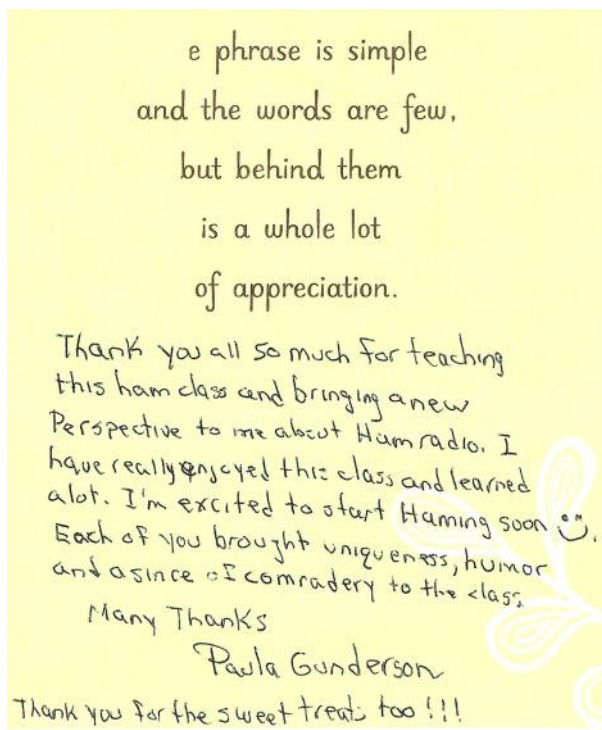 e phrase is simple
and the words are few,
but behind them
is a whole lot
of appreciation.
Thank you all so much for teaching
this ham class and bringing a new
Perspective to me about Ham radio. I
have really enjoyed this class and learned
alot. I'm excited to start Haming soon
Each of you brought uniqueness, humor
and a since of comradery to the class.
Many Thanks
Paula Gunderson
Thank you for the sweet treats too !!!